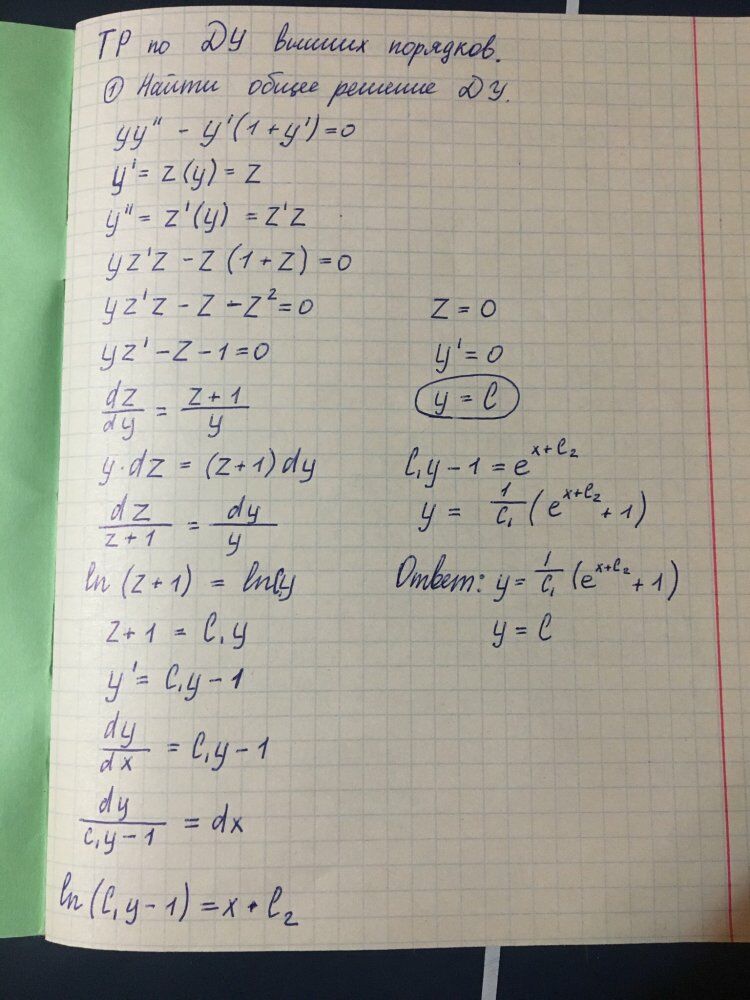 ТР по ДУ высших порядков.
① Найти общее решение ДУ.
yy'' - y'(1+y')=0
y' = z(y) = z
y'' = z'(y) = z'z
yz'z - z(1+z)=0
yz'z - z - z²=0
yz' - z - 1=0
dz/dy = z+1/y
y·dz = (z+1)dy
dz/z+1 = dy/y
ln(z+1) = lnC₁y
z+1 = C₁y
y' = C₁y-1
dy/dx = C₁y-1
dy/C₁y-1 = dx
ln(C₁y-1) = x+C₂
z=0
y'=0
y=C
C₁y-1 = e^{x+C₂}
y = 1/C₁ (e^{x+C₂}+1)
Ответ: y = 1/C₁ (e^{x+C₂}+1)
y=C